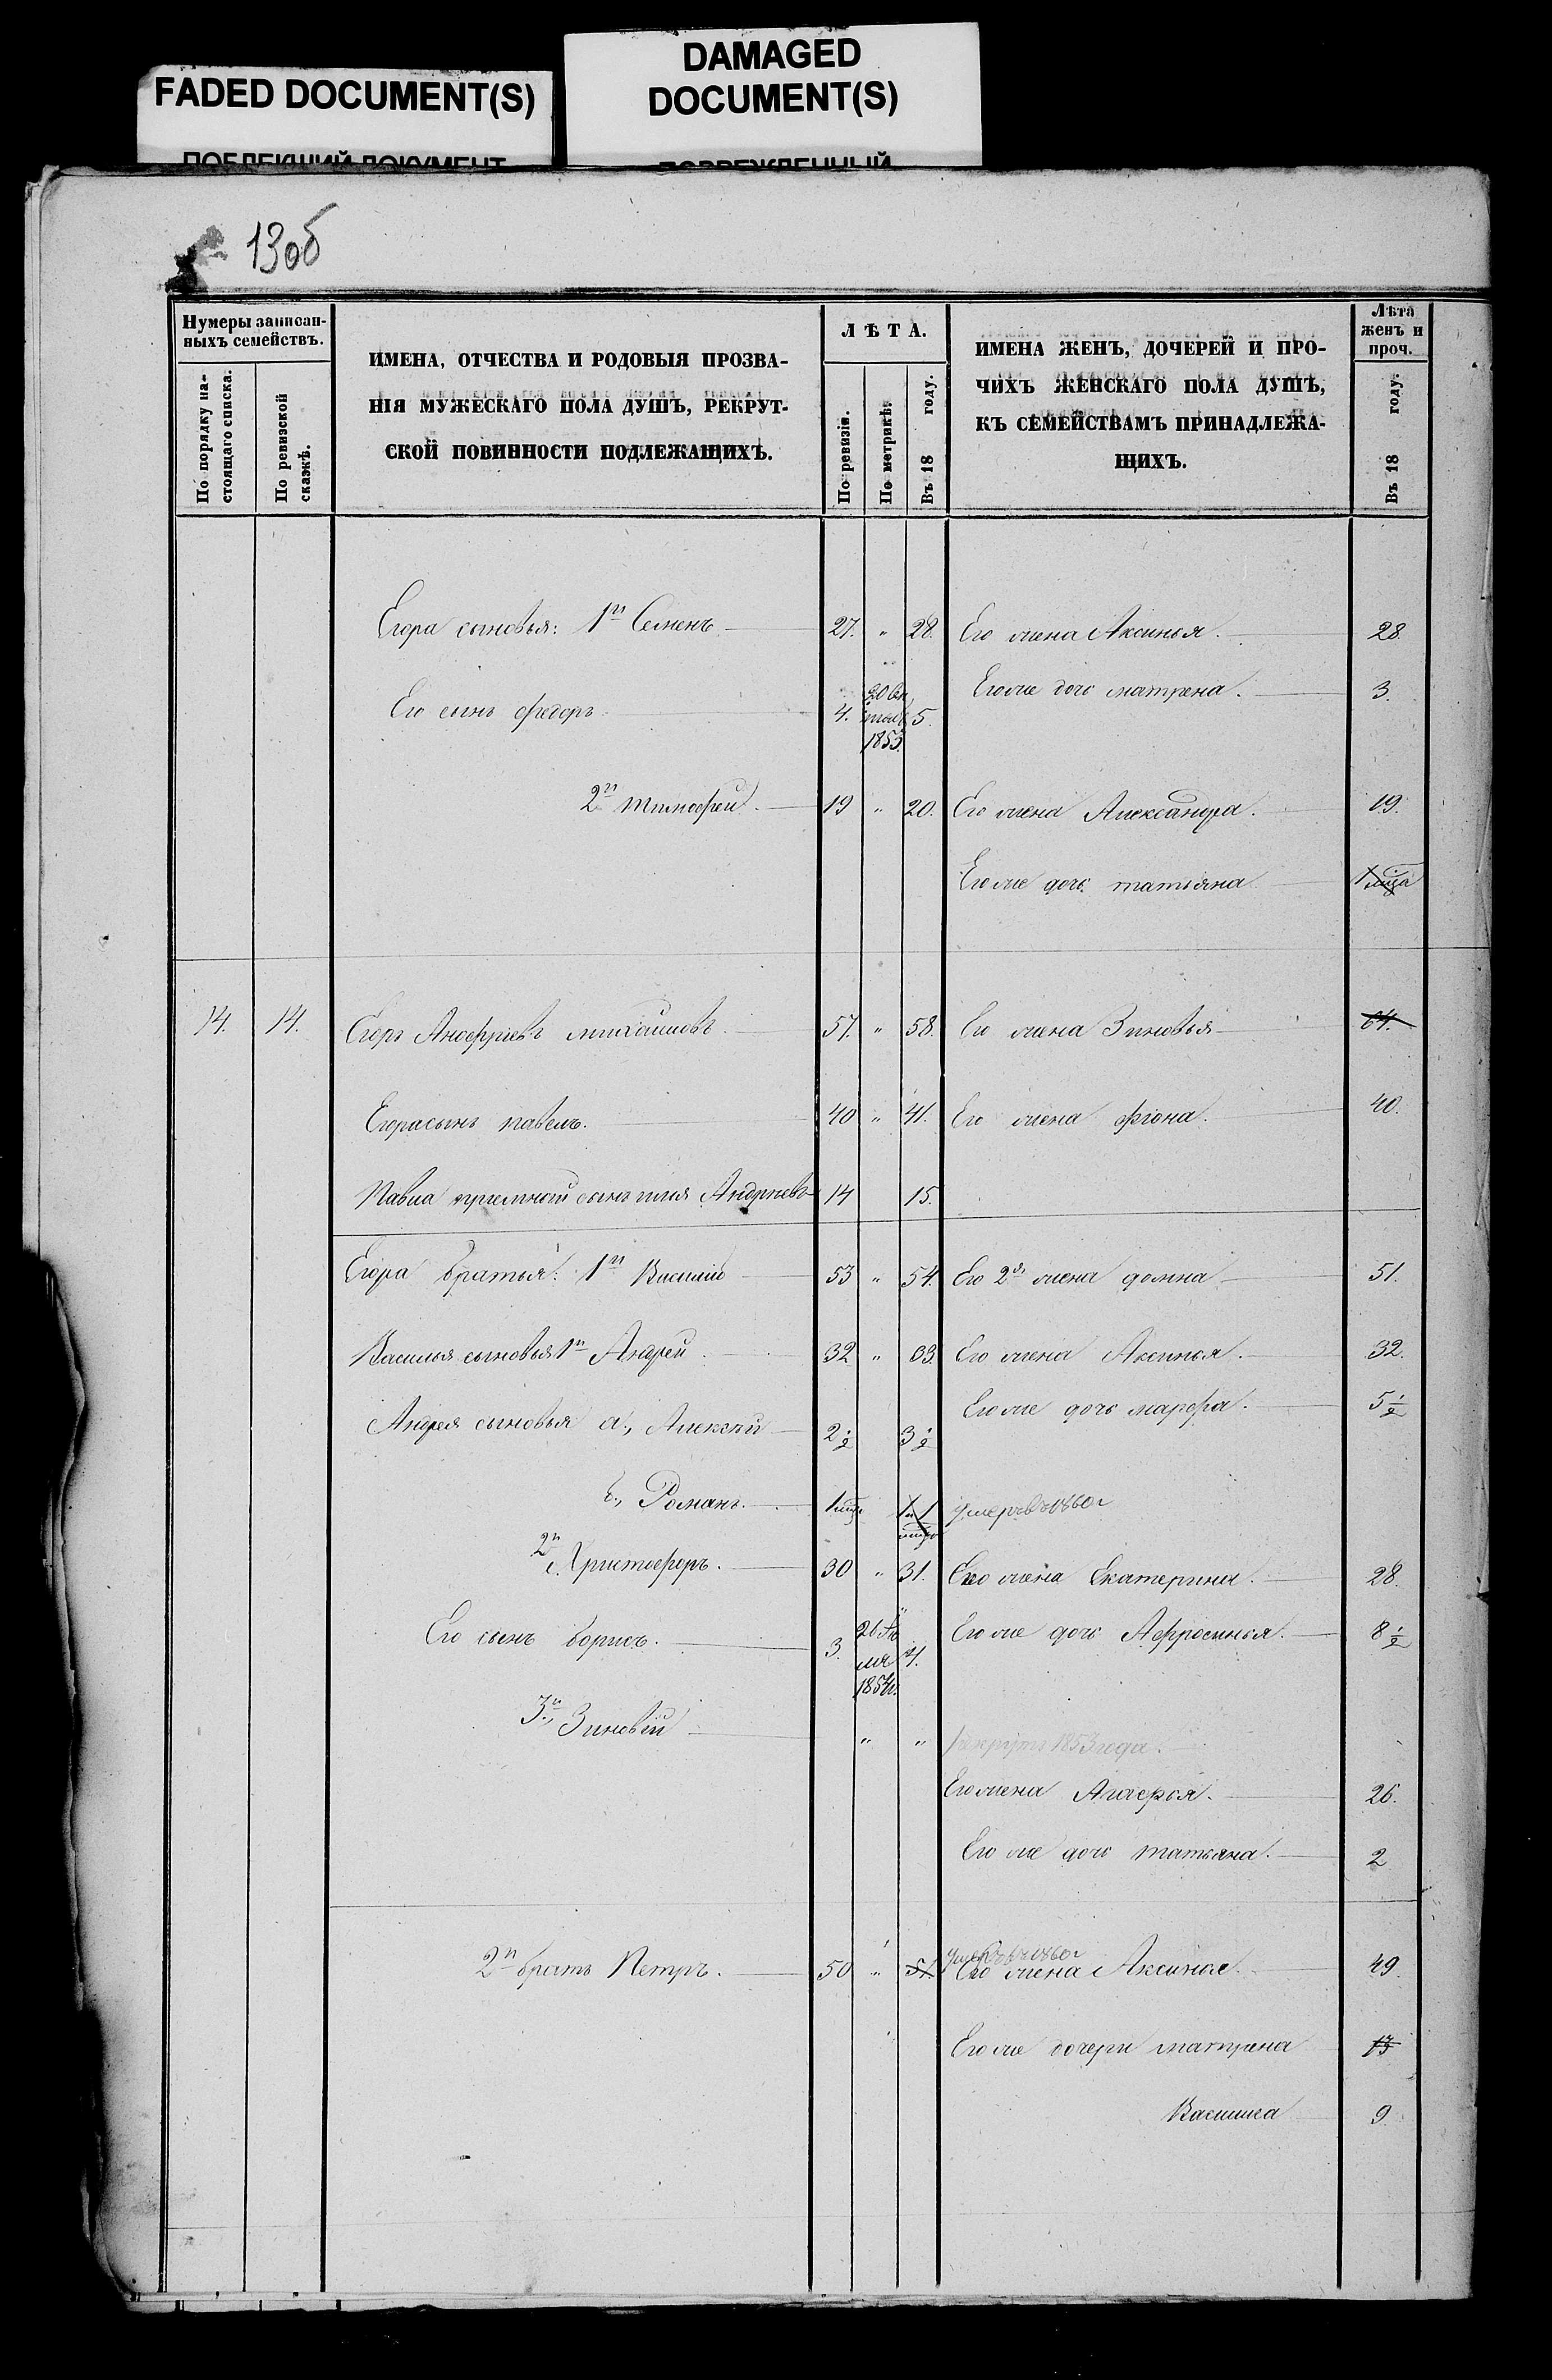 FADED DOCUMENT(S)
DAMAGED
DOCUMENT(S)
ПОБЛЕКШИЙ ДОКУМЕНТ
ПОВРЕЖДЕННЫЙ
13об
Нумеры записан-
ныхъ семействъ.
По порядку на-
стоящаго списка.
По ревизской
сказкѣ.
ИМЕНА, ОТЧЕСТВА И РОДОВЫЯ ПРОЗВА-
НІЯ МУЖЕСКАГО ПОЛА ДУШЪ, РЕКРУТ-
СКОЙ ПОВИННОСТИ ПОДЛЕЖАЩИХЪ.
ЛѢТА.
По ревизіи.
По метрикѣ.
Въ 18 году.
ИМЕНА ЖЕНЪ, ДОЧЕРЕЙ И ПРО-
ЧИХЪ ЖЕНСКАГО ПОЛА ДУШЪ,
КЪ СЕМЕЙСТВАМЪ ПРИНАДЛЕЖА-
ЩИХЪ.
Лѣта
женъ и
проч.
Въ 18 году.
Егора сыновья: 1й Семенъ 27. " 28. Его жена Аксинья. 28.
Егоже дочь матрена. 3.
Его сынъ федоръ 4. 1853 5.
2й тимофей 19 " 20. Его жена Александра. 19.
Егоже дочь татьяна
14. 14. Егоръ Анофріевъ михайловъ 57. " 58. Его жена Зиновья 64.
Егора сынъ павелъ. 40 " 41. Его жена фіона. 40.
Павла пріемный сынъ илья Андріевъ 14 15.
Егора братья: 1й Василій 53 " 54. Его 2я жена домна 51.
Василья сыновья 1й Андрей 32 " 33. Его жена Аксинья. 32.
Егоже дочь марфа. 5½
Андрея сыновья а., Алексѣй 2½ 3½
б., Романъ. умеръ въ 1860г
2й Христофоръ. 30 " 31. Его жена Екатерина. 28.
Его сынъ борисъ. 3. 26 1854г. 4. Егоже дочь Афросинья. 8½
3й Зиновій " " рекрутъ 1853 года.
Его жена Агафья. 26.
Егоже дочь татьяна. 2
умеръ въ 1860г
2й братъ Петръ. 50 " 51. Его жена Аксинья. 49.
Егоже дочери матрена 13
Василиса 9.